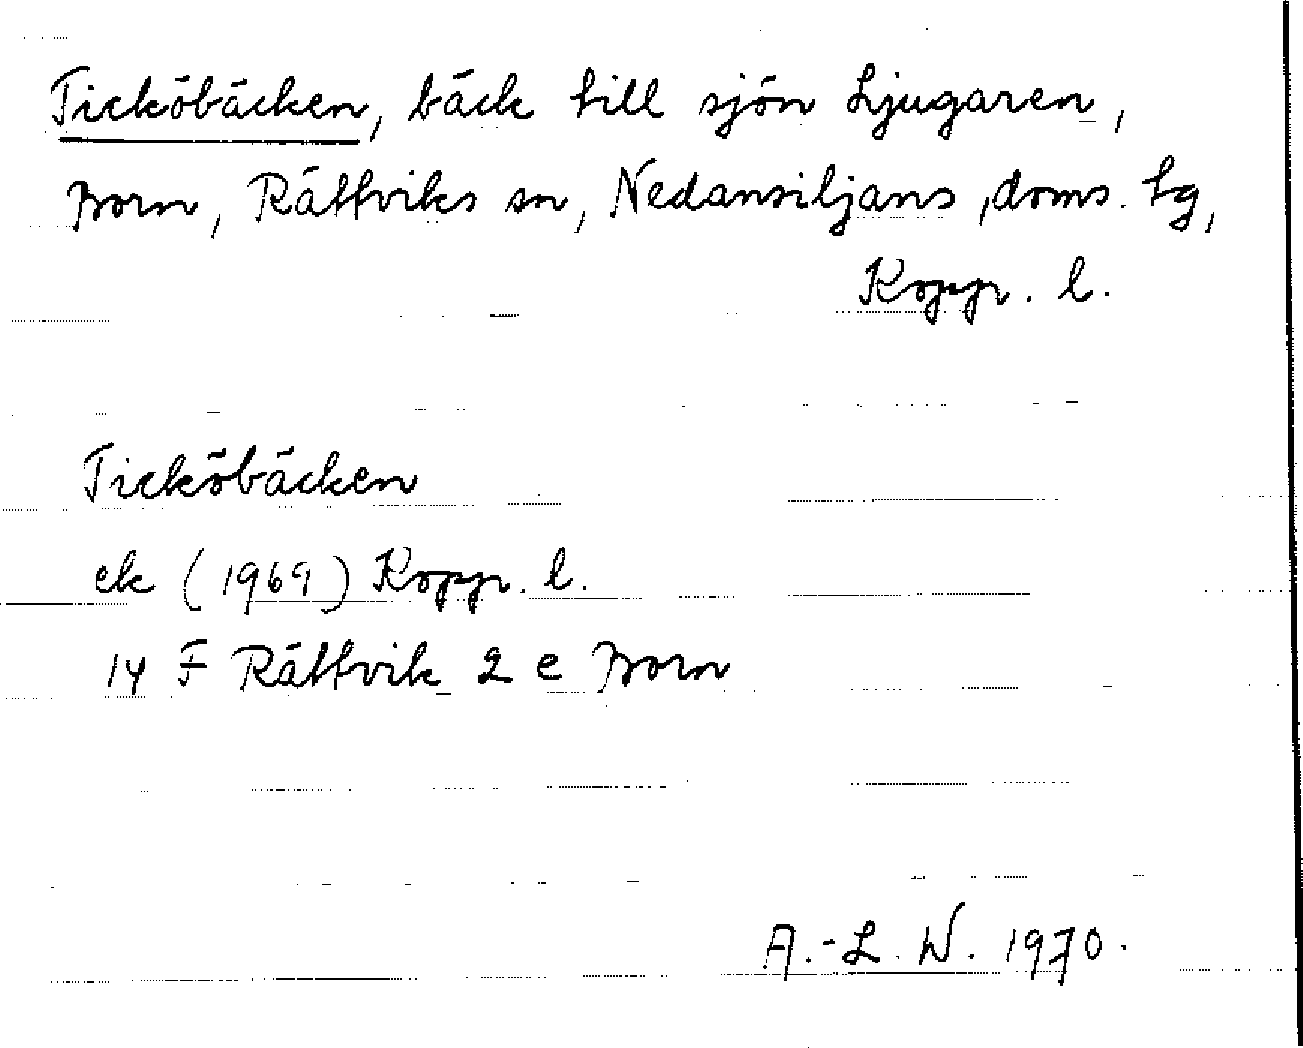 Ticköbäcken, bäck till sjön Ljugaren,
Born, Rättviks sn, Nedansiljans doms. tg,
Kopp. l.
Ticköbäcken
ek (1969) Kopp. l.
14 F Rättvik 2 e Born
A.-L. W. 1970.